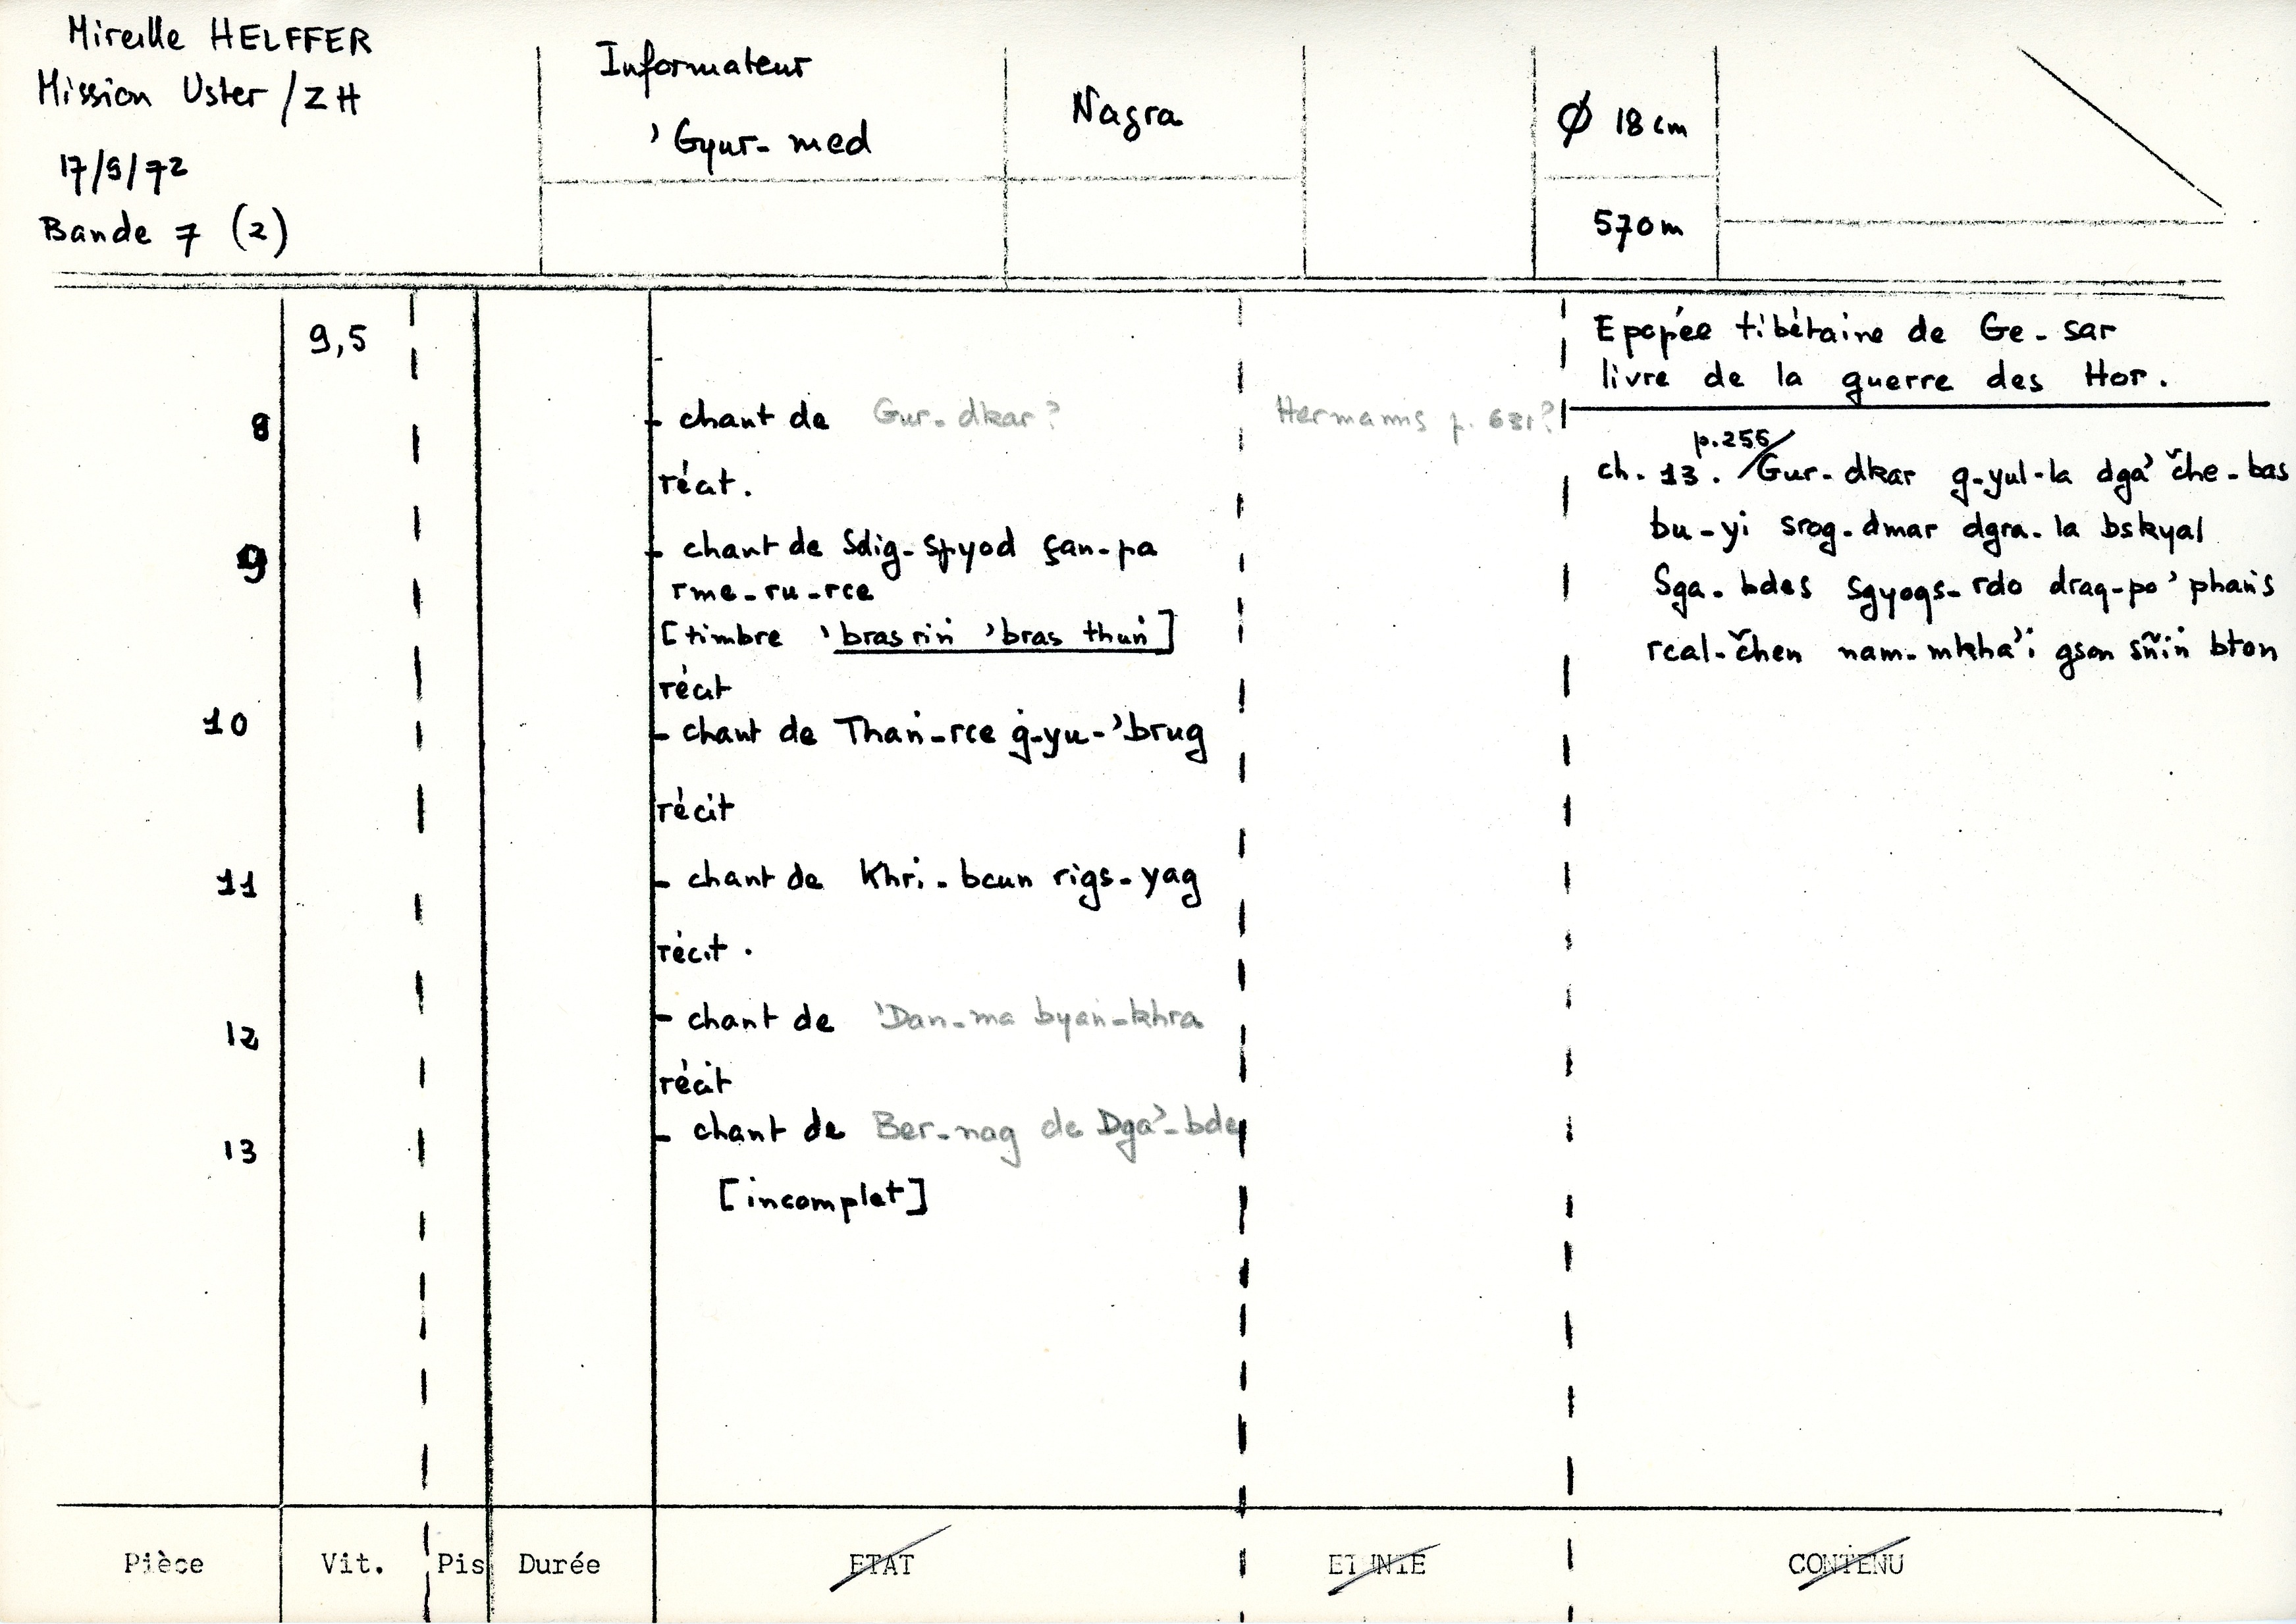 Mireille HELFFER
Mission Uster / ZH
17/9/72
Bande 7 (2)
Informateur
'Gyur-med
Nagra
Ø 18 cm
570 m
9,5
Epopée tibétaine de Ge-sar
livre de la guerre des Hor.
8 - chant de Gur-dkar? Hermanns p. 631?
récit.
9 - chant de Sdig-spyod çan-pa
rme-ru-rce
[timbre 'bras riṅ 'bras thuṅ]
récit
10 - chant de Thaṅ-rce ġ-yu-'brug
récit
11 - chant de Khri-bcun rigs-yag
récit.
12 - chant de 'Dan-ma byaṅ-khra
récit
13 - chant de Ber-nag de Dga'-bde
[incomplet]
p.256
ch. 13. / Gur-dkar g-yul-la dga' čhe-bas
bu-yi srog-dmar dgra-la bskyal
Sga-bdes sgyogs-rdo drag-po 'phaṅs
rcal-čhen nam-mkha'i gson sñiṅ bton
Pièce Vit. Pis Durée ETAT ETHNIE CONTENU